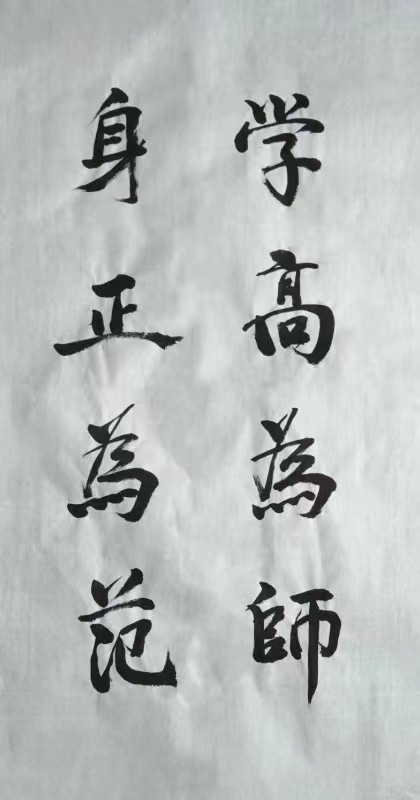 学高為師
身正為范